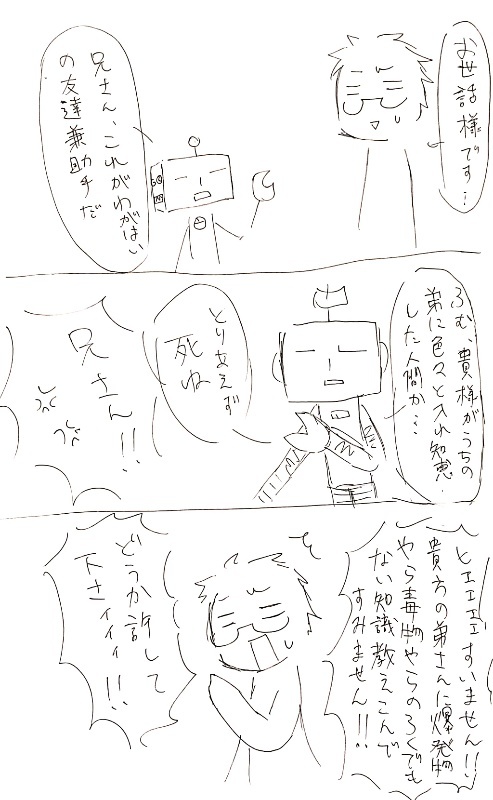 お世話様です…
兄さん、これがわがはい
の友達兼助手だ
ふむ、貴様がうちの
弟に色々と入れ知恵
した人間か…
とりあえず
死ね
兄さん!!
ヒエエエエすいません!!
貴方の弟さんに爆発物
やら毒物やらのろくでも
ない知識教えこんで
すみません!!
どうか許して
下さイィィ!!